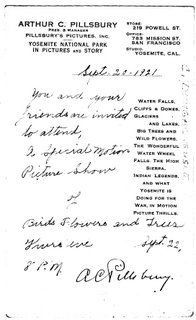 ARTHUR C. PILLSBURY
PRES. & MANAGER
PILLSBURY'S PICTURES, INC.
YOSEMITE NATIONAL PARK
IN PICTURES AND STORY
STORE:
219 POWELL ST.
OFFICE:
785 MISSION ST.
SAN FRANCISCO
STUDIO:
YOSEMITE, CAL.
Sept. 20 - 1921
You and your
friends are invited
to attend,
A Special Motion
Picture Show
of
Birds Flowers and Trees
Thurs eve Sept. 22,
8 P.M
A C Pillsbury.
WATER FALLS,
CLIFFS & DOMES,
GLACIERS
AND LAKES.
BIG TREES AND
WILD FLOWERS.
THE WONDERFUL
WATER WHEEL
FALLS. THE HIGH
SIERRA.
INDIAN LEGENDS,
AND WHAT
YOSEMITE IS
DOING FOR THE
WAR, IN MOTION
PICTURE THRILLS.